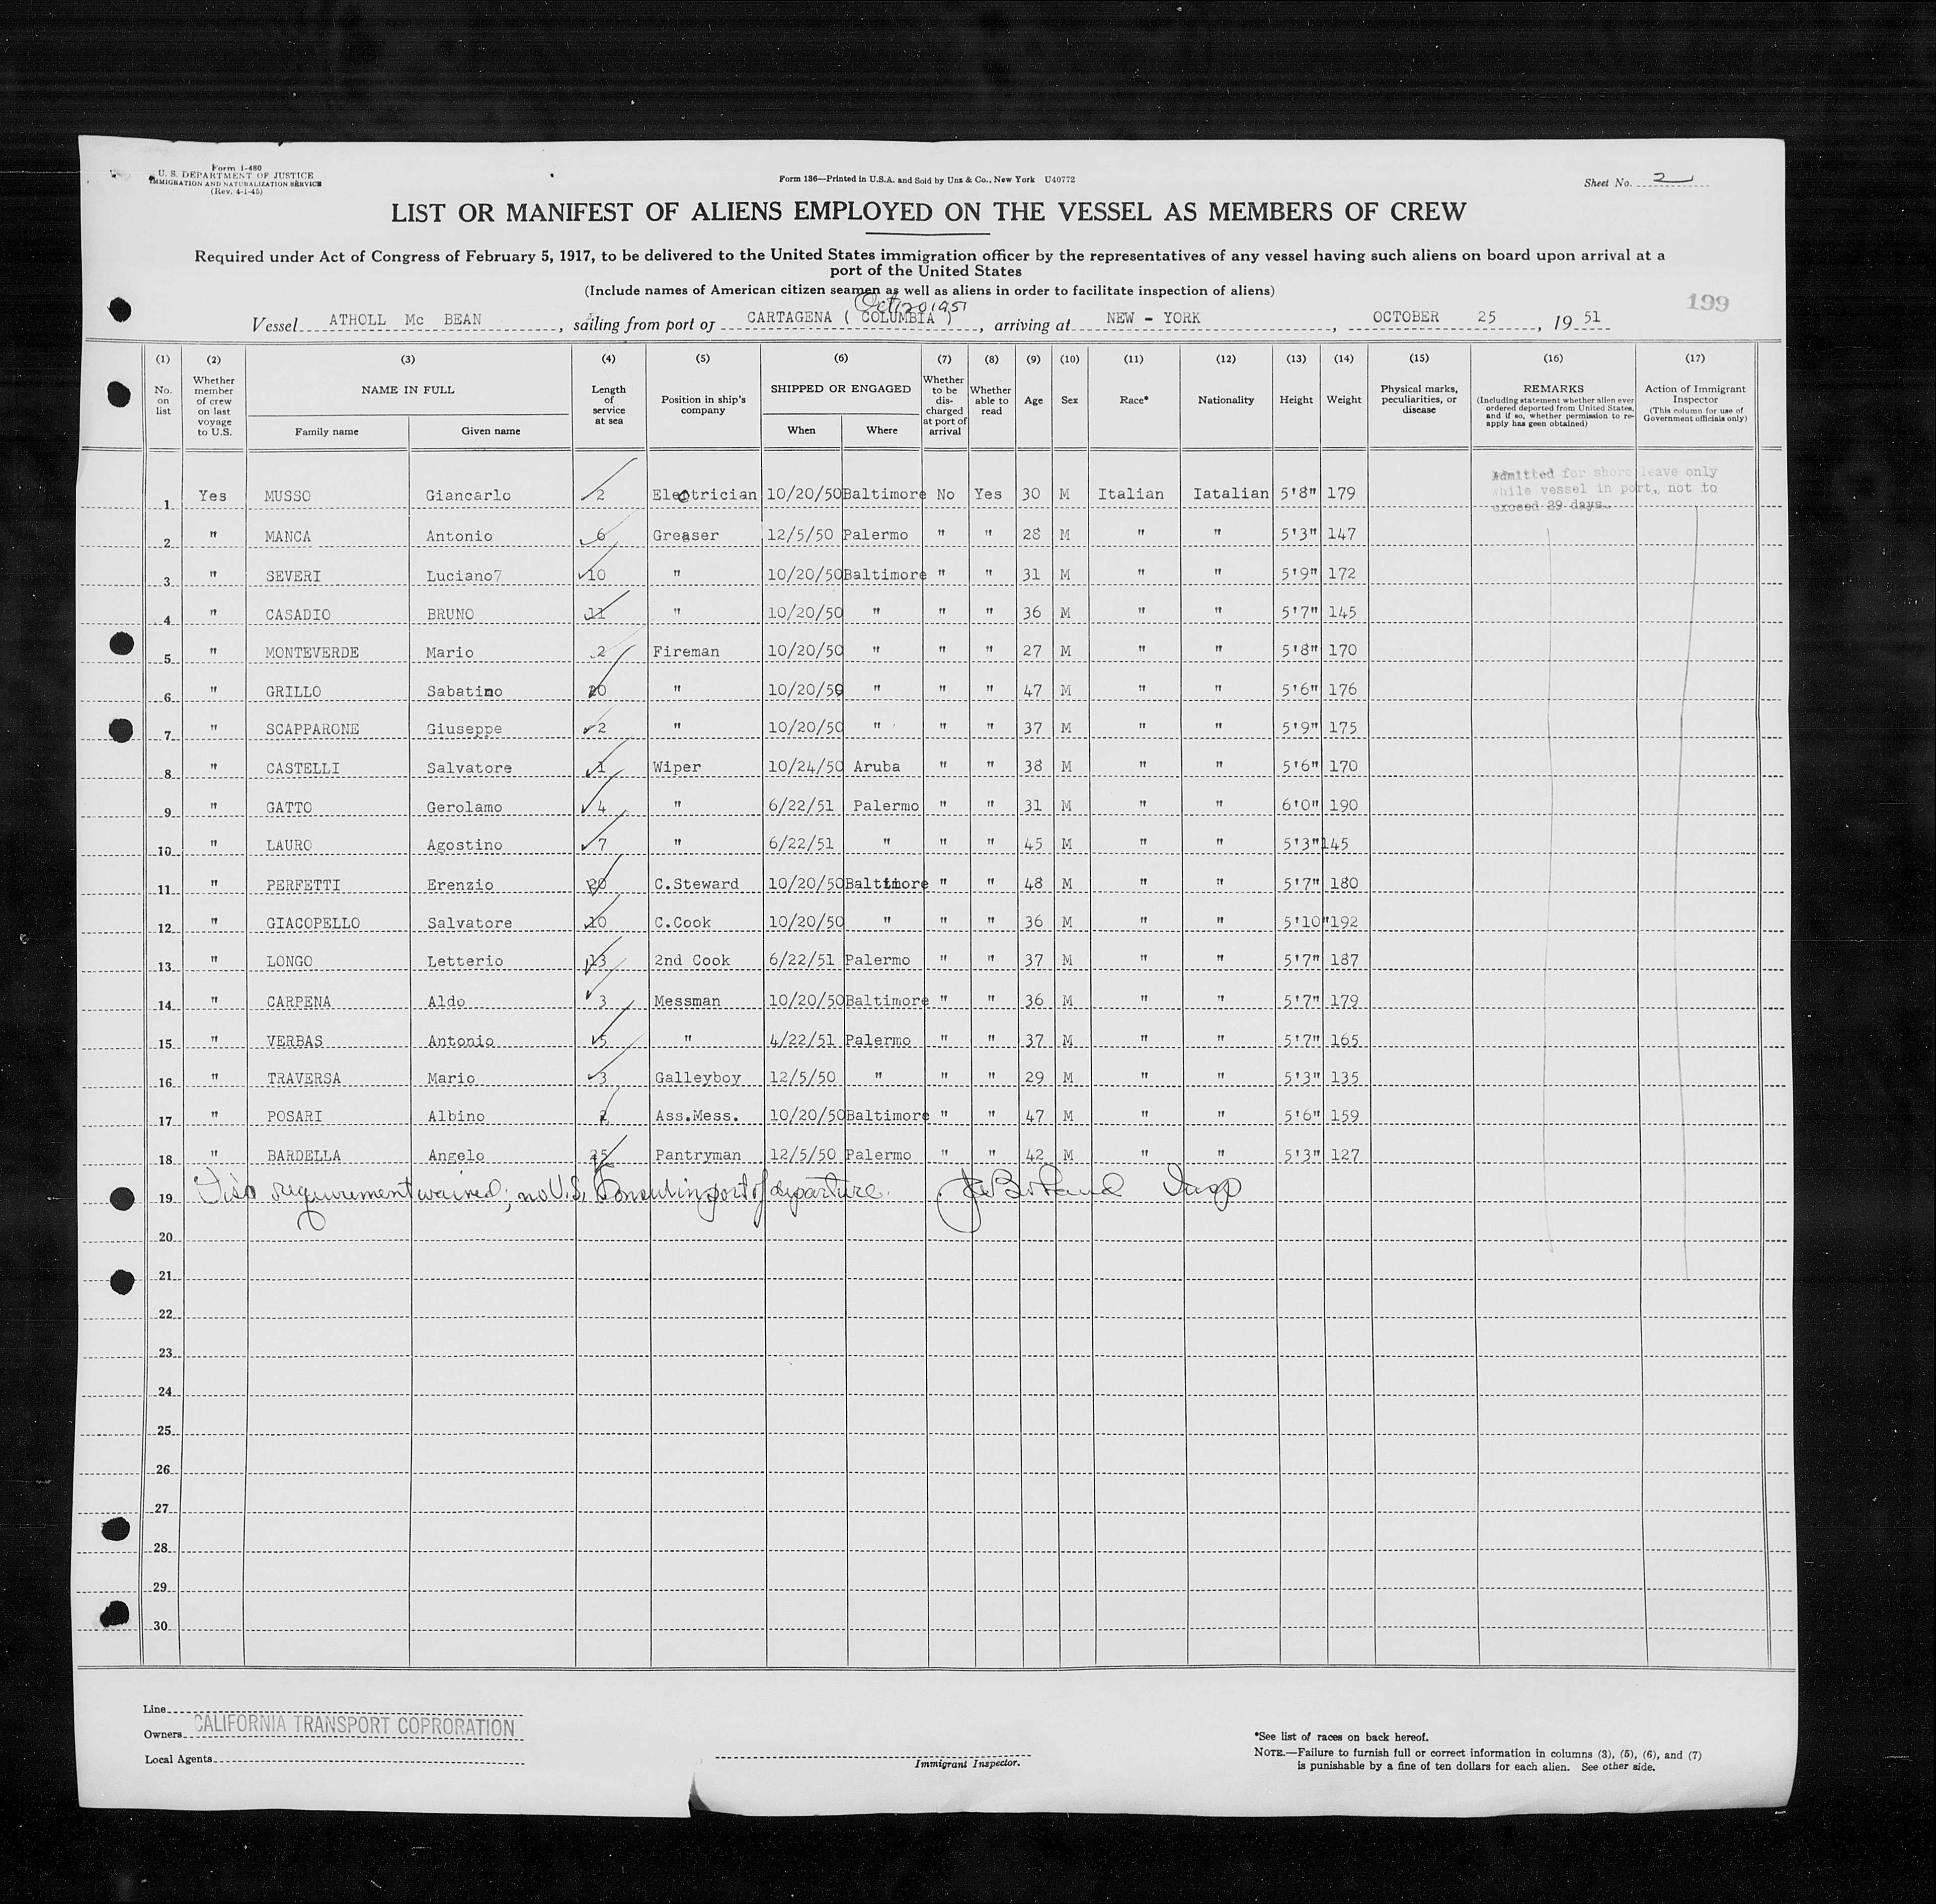 Form I-480
U. S. DEPARTMENT OF JUSTICE
IMMIGRATION AND NATURALIZATION SERVICE
(Rev. 4-1-45)
Form 136—Printed in U.S.A. and Sold by Unz & Co., New York U40772
Sheet No. 2
LIST OR MANIFEST OF ALIENS EMPLOYED ON THE VESSEL AS MEMBERS OF CREW
Required under Act of Congress of February 5, 1917, to be delivered to the United States immigration officer by the representatives of any vessel having such aliens on board upon arrival at a
port of the United States
(Include names of American citizen seamen as well as aliens in order to facilitate inspection of aliens)
Oct 20 1951
199
Vessel ATHOLL Mc BEAN, sailing from port of CARTAGENA ( COLUMBIA ), arriving at NEW - YORK, OCTOBER 25, 19 51
(1) (2) (3) (4) (5) (6) (7) (8) (9) (10) (11) (12) (13) (14) (15) (16) (17)
No. on list
Whether member of crew on last voyage to U.S.
NAME IN FULL
Family name Given name
Length of service at sea
Position in ship's company
SHIPPED OR ENGAGED
When Where
Whether to be discharged at port of arrival
Whether able to read
Age
Sex
Race*
Nationality
Height
Weight
Physical marks, peculiarities, or disease
REMARKS
(Including statement whether alien ever ordered deported from United States, and if so, whether permission to re-apply has geen obtained)
Action of Immigrant Inspector
(This column for use of Government officials only)
Admitted for shore leave only
while vessel in port, not to
exceed 29 days.
1 Yes MUSSO Giancarlo 2 Electrician 10/20/50 Baltimore No Yes 30 M Italian Iatalian 5'8" 179
2 " MANCA Antonio 6 Greaser 12/5/50 Palermo " " 28 M " " 5'3" 147
3 " SEVERI Luciano7 10 " 10/20/50 Baltimore " " 31 M " " 5'9" 172
4 " CASADIO BRUNO 11 " 10/20/50 " " " 36 M " " 5'7" 145
5 " MONTEVERDE Mario 2 Fireman 10/20/50 " " " 27 M " " 5'8" 170
6 " GRILLO Sabatino 20 " 10/20/50 " " " 47 M " " 5'6" 176
7 " SCAPPARONE Giuseppe 2 " 10/20/50 " " " 37 M " " 5'9" 175
8 " CASTELLI Salvatore 1 Wiper 10/24/50 Aruba " " 38 M " " 5'6" 170
9 " GATTO Gerolamo 4 " 6/22/51 Palermo " " 31 M " " 6'0" 190
10 " LAURO Agostino 7 " 6/22/51 " " " 45 M " " 5'3" 145
11 " PERFETTI Erenzio 20 C.Steward 10/20/50 Baltimore " " 48 M " " 5'7" 180
12 " GIACOPELLO Salvatore 10 C.Cook 10/20/50 " " " 36 M " " 5'10" 192
13 " LONGO Letterio 13 2nd Cook 6/22/51 Palermo " " 37 M " " 5'7" 187
14 " CARPENA Aldo 3 Messman 10/20/50 Baltimore " " 36 M " " 5'7" 179
15 " VERBAS Antonio 5 " 4/22/51 Palermo " " 37 M " " 5'7" 165
16 " TRAVERSA Mario 3 Galleyboy 12/5/50 " " " 29 M " " 5'3" 135
17 " POSARI Albino 2 Ass.Mess. 10/20/50 Baltimore " " 47 M " " 5'6" 159
18 " BARDELLA Angelo 25 Pantryman 12/5/50 Palermo " " 42 M " " 5'3" 127
19 Visa requirement waived; no U.S. Consul in port of departure. Insp
20
21
22
23
24
25
26
27
28
29
30
Line
Owners CALIFORNIA TRANSPORT COPRORATION
Local Agents
Immigrant Inspector.
*See list of races on back hereof.
NOTE.—Failure to furnish full or correct information in columns (3), (5), (6), and (7)
is punishable by a fine of ten dollars for each alien. See other side.